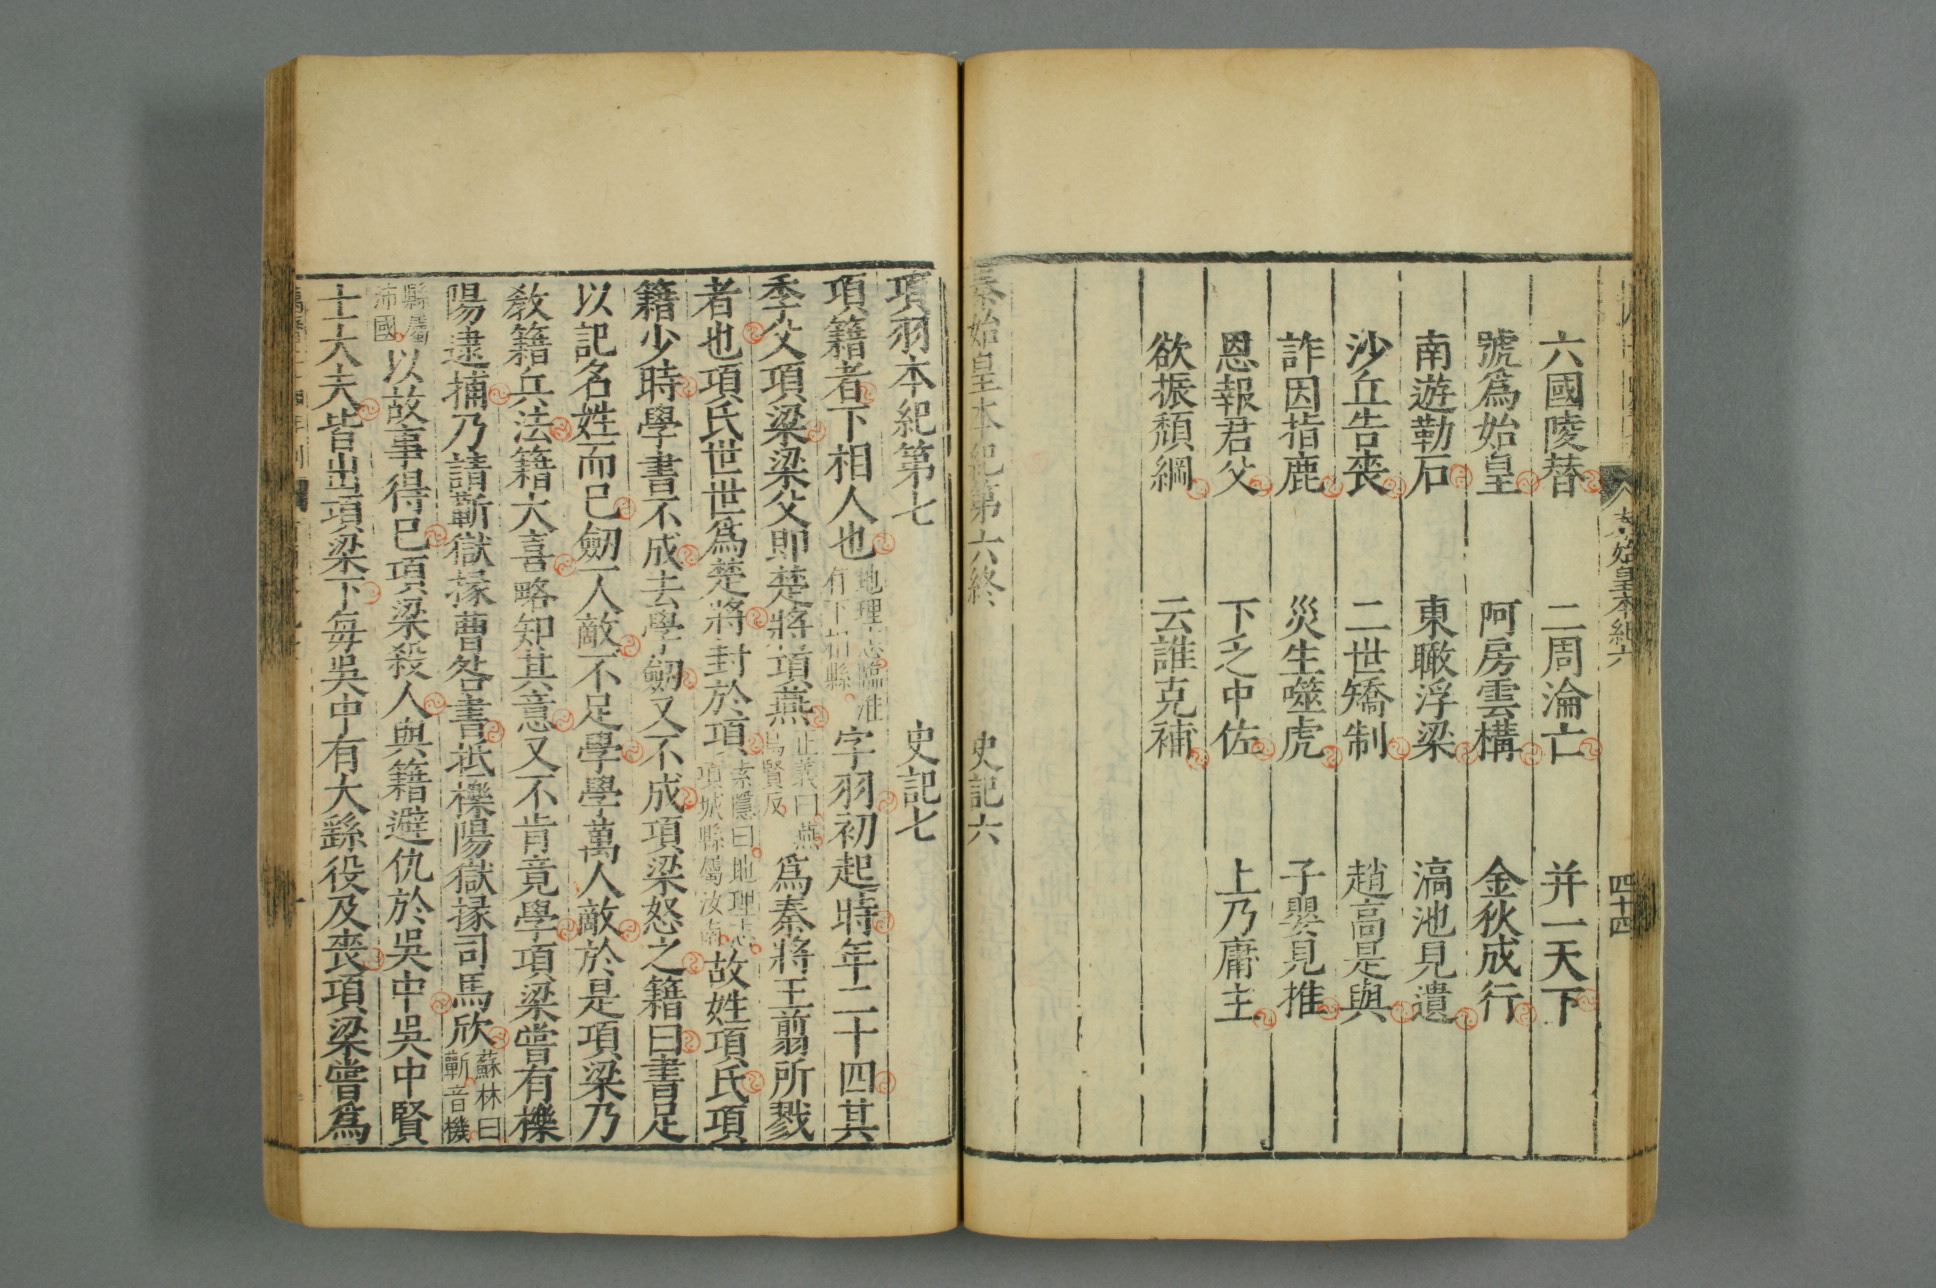 秦始皇本紀六 四十四
六國陵替 二周淪亡 并一天下
號爲始皇 阿房雲構 金狄成行
南遊勒石 東瞰浮梁 滈池見遺
沙丘告喪 二世矯制 趙高是與
詐因指鹿 災生噬虎 子嬰見推
恩報君父 下乏中佐 上乃庸主
欲振頹綱 云誰克補
秦始皇本紀第六終 史記六
項羽本紀第七 史記七
項籍者下相人也地理志臨淮有下相縣字羽初起時年二十四其
季父項梁梁父即楚將項燕正義曰燕烏賢反爲秦將王翦所戮
者也項氏世世爲楚將封於項索隱曰地理志項城縣屬汝南故姓項氏項
籍少時學書不成去學劒又不成項梁怒之籍曰書足
以記名姓而已劒一人敵不足學學萬人敵於是項梁乃
教籍兵法籍大喜略知其意又不肯竟學項梁嘗有櫟
陽逮捕乃請蘄獄掾曹咎書抵櫟陽獄掾司馬欣蘇林曰蘄音機
縣屬沛國以故事得已項梁殺人與籍避仇於吳中吳中賢
士大夫皆出項梁下每吳中有大繇役及喪項梁嘗爲